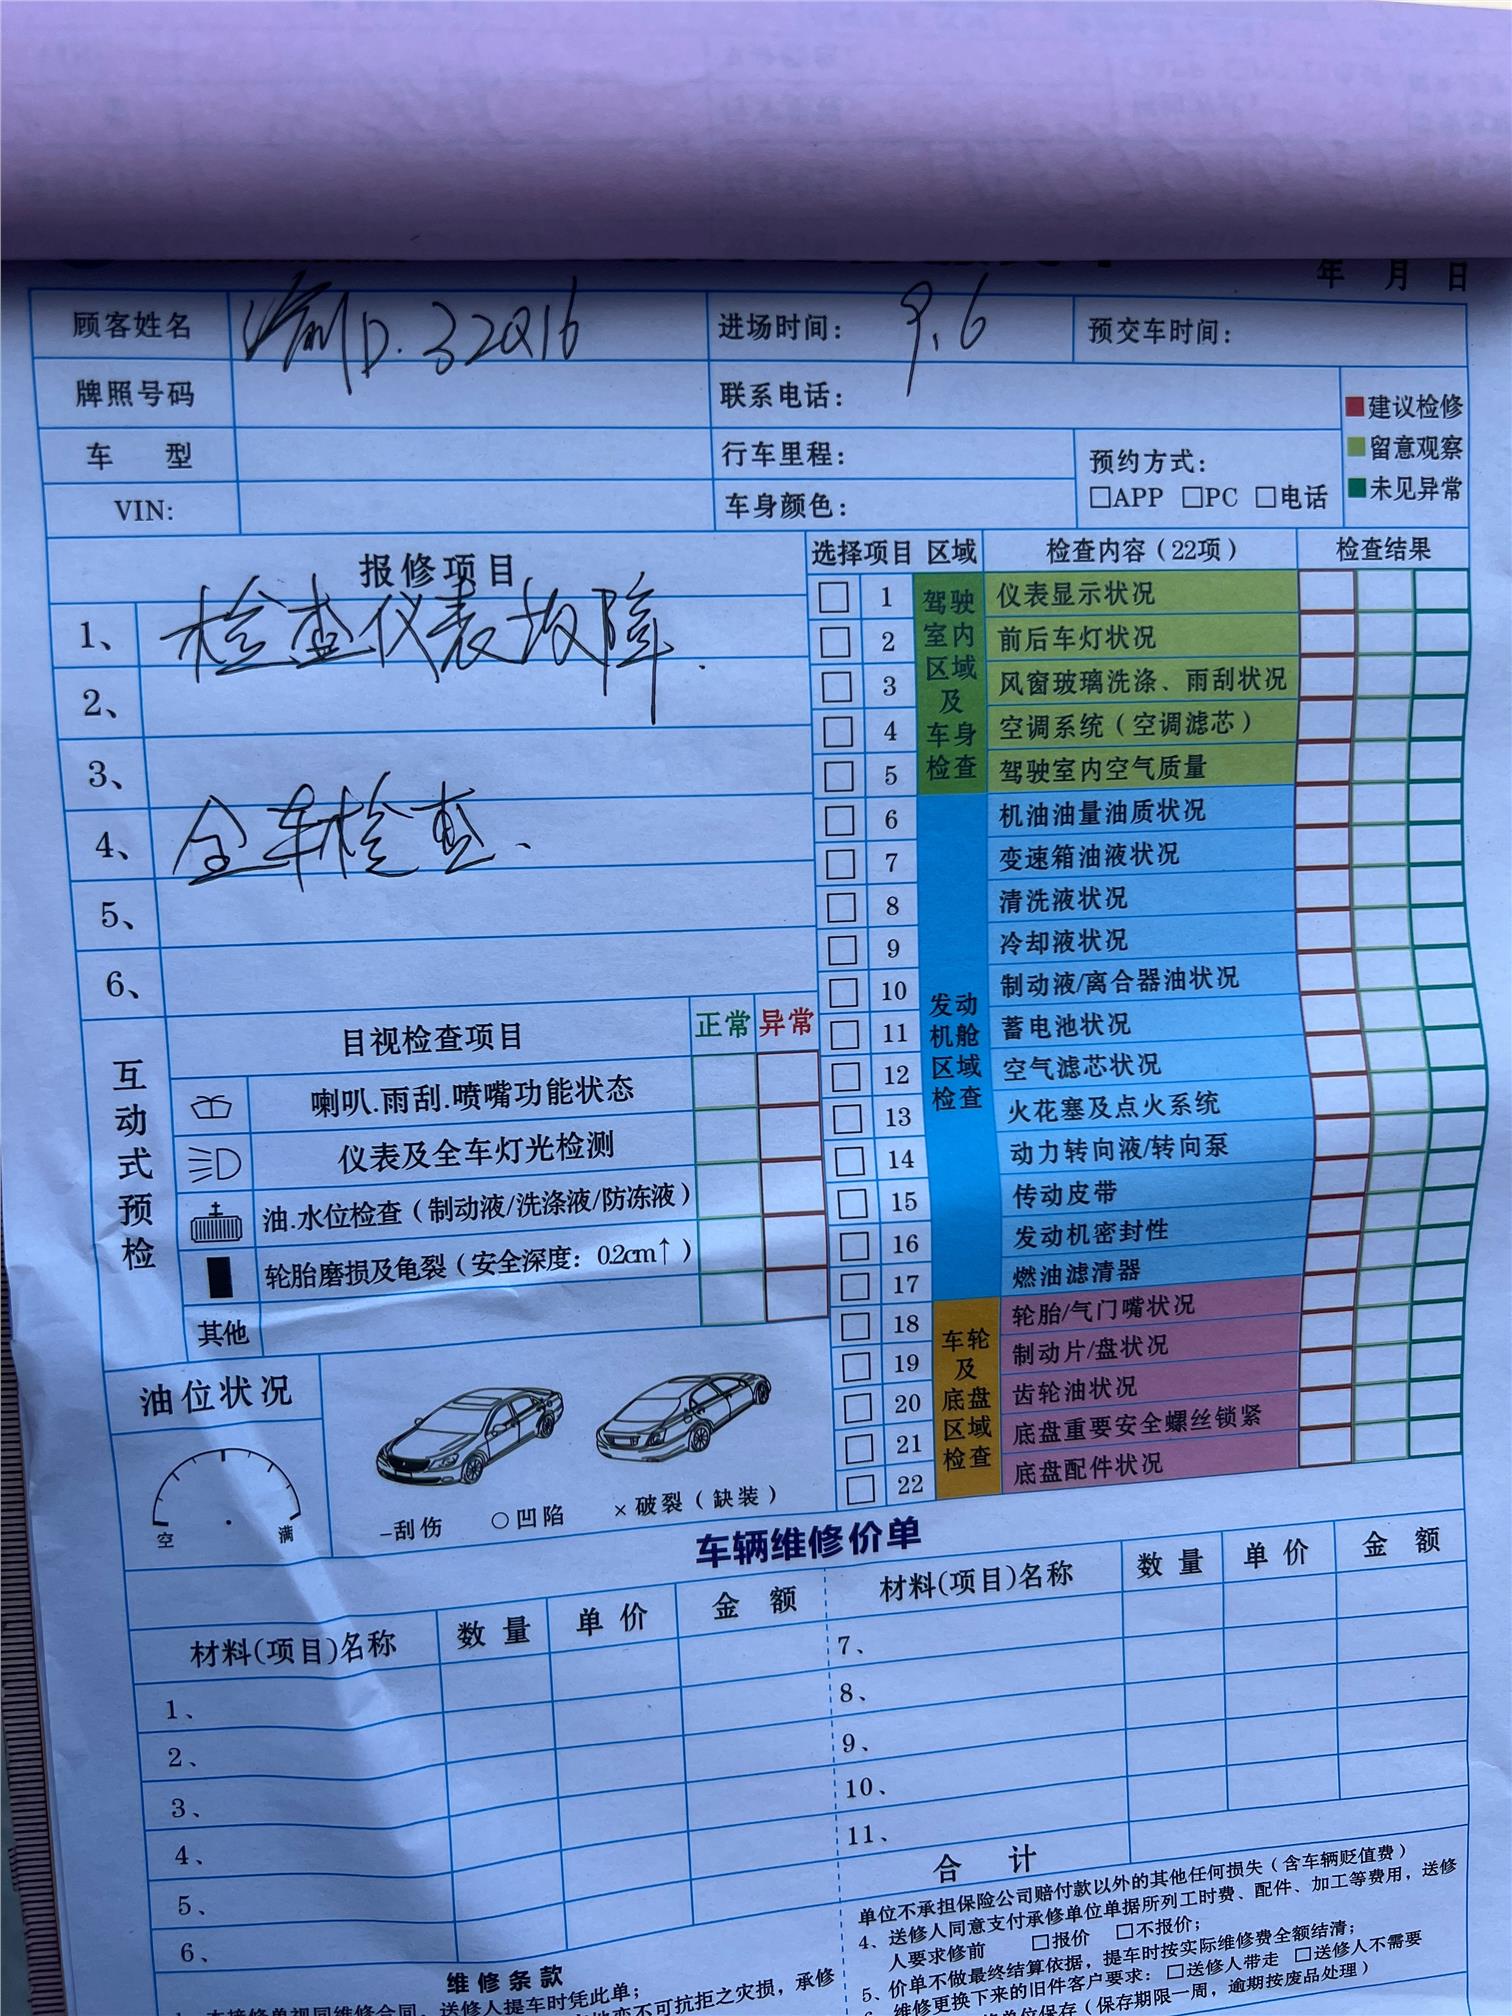 年 月 日
顾客姓名 渝D.32Q16 进场时间： 9.6 预交车时间：
牌照号码 联系电话：
车 型 行车里程： 预约方式：
VIN: 车身颜色： □APP □PC □电话
■建议检修
■留意观察
■未见异常
报修项目
1、检查仪表故障.
2、
3、
4、全车检查、
5、
6、
选择项目 区域 检查内容（22项） 检查结果
驾驶室内区域及车身检查
□ 1 仪表显示状况
□ 2 前后车灯状况
□ 3 风窗玻璃洗涤、雨刮状况
□ 4 空调系统（空调滤芯）
□ 5 驾驶室内空气质量
发动机舱区域检查
□ 6 机油油量油质状况
□ 7 变速箱油液状况
□ 8 清洗液状况
□ 9 冷却液状况
□ 10 制动液/离合器油状况
□ 11 蓄电池状况
□ 12 空气滤芯状况
□ 13 火花塞及点火系统
□ 14 动力转向液/转向泵
□ 15 传动皮带
□ 16 发动机密封性
□ 17 燃油滤清器
车轮及底盘区域检查
□ 18 轮胎/气门嘴状况
□ 19 制动片/盘状况
□ 20 齿轮油状况
□ 21 底盘重要安全螺丝锁紧
□ 22 底盘配件状况
互动式预检
目视检查项目 正常 异常
喇叭.雨刮.喷嘴功能状态
仪表及全车灯光检测
油.水位检查（制动液/洗涤液/防冻液）
轮胎磨损及龟裂（安全深度：0.2cm↑）
其他
油位状况
空 满
-刮伤 ○凹陷 ×破裂（缺装）
车辆维修价单
材料(项目)名称 数量 单价 金 额 材料(项目)名称 数量 单价 金 额
1、 7、
2、 8、
3、 9、
4、 10、
5、 11、
6、 合 计
维修条款
本接修单视同维修合同，送修人提车时凭此单；
不可抗拒之灾损，承修
单位不承担保险公司赔付款以外的其他任何损失（含车辆贬值费）
4、送修人同意支付承修单位单据所列工时费、配件、加工等费用，送修
人要求修前 □报价 □不报价；
5、价单不做最终结算依据，提车时按实际维修费全额结清；
维修更换下来的旧件客户要求：□送修人带走 □送修人不需要
单位保存（保存期限一周，逾期按废品处理）